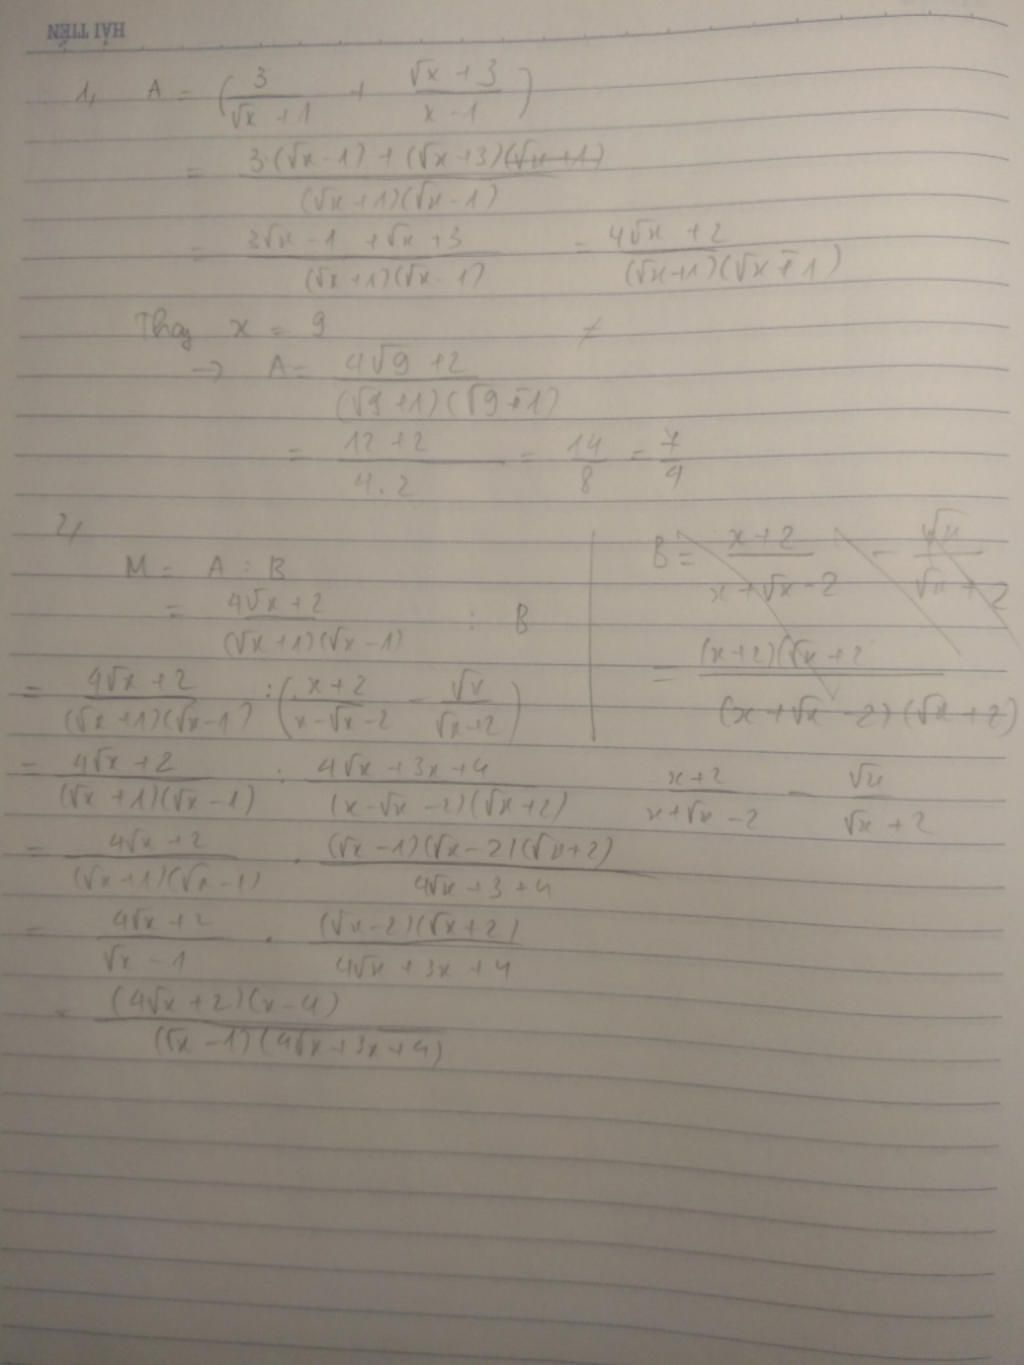 HẢI TIẾN
1, A = ( 3/(√x + 1) + (√x + 3)/(x - 1) )
= (3·(√x - 1) + (√x + 3)(√x + 1))/((√x + 1)(√x - 1))
= (3√x - 1 + √x + 3)/((√x + 1)(√x - 1)) = (4√x + 2)/((√x + 1)(√x - 1))
Thay x = 9 ≠
→ A = (4√9 + 2)/((√9 + 1)(√9 - 1))
= (12 + 2)/(4.2) = 14/8 = 7/4
2,
M = A : B
= (4√x + 2)/((√x + 1)(√x - 1)) : B
= (4√x + 2)/((√x + 1)(√x - 1)) : ( (x + 2)/(x - √x - 2) - √x/(√x + 2) )
= (4√x + 2)/((√x + 1)(√x - 1)) : (4√x + 3x + 4)/((x - √x - 2)(√x + 2))
= (4√x + 2)/((√x + 1)(√x - 1)) . ((√x - 1)(√x - 2)(√x + 2))/(4√x + 3 + 4)
= (4√x + 2)/(√x - 1) . ((√x - 2)(√x + 2))/(4√x + 3x + 4)
= ((4√x + 2)(x - 4))/((√x - 1)(4√x + 3x + 4))
B = (x + 2)/(x + √x - 2) - √x/(√x + 2)
= ((x + 2)(√x + 2)/((x + √x - 2)(√x + 2))
(x + 2)/(x + √x - 2) - √x/(√x + 2)